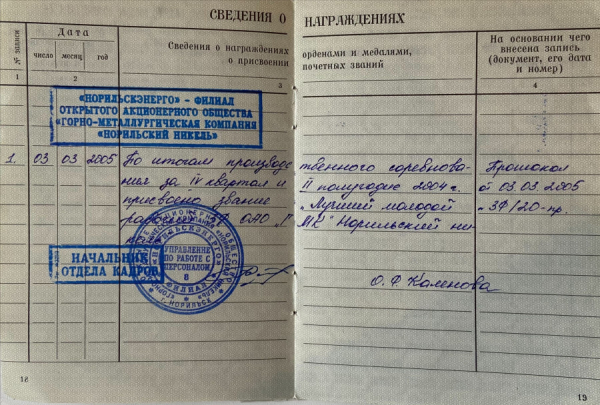 СВЕДЕНИЯ О НАГРАЖДЕНИЯХ
№ записи
Дата
число месяц год
Сведения о награждениях орденами и медалями,
о присвоении почетных званий
На основании чего
внесена запись
(документ, его дата
и номер)
1 2 3 4
«НОРИЛЬСКЭНЕРГО» – ФИЛИАЛ
ОТКРЫТОГО АКЦИОНЕРНОГО ОБЩЕСТВА
«ГОРНО-МЕТАЛЛУРГИЧЕСКАЯ КОМПАНИЯ
«НОРИЛЬСКИЙ НИКЕЛЬ»
1. 03 03 2005 По итогам производственного соревнова- Протокол
ния за IV квартал и II полугодие 2004 г. от 03.03.2005
присвоено звание „Лучший молодой ЗФ/20-пр.
МК" Норильский ни
НАЧАЛЬНИК
ОТДЕЛА КАДРОВ
УПРАВЛЕНИЕ
ПО РАБОТЕ С
ПЕРСОНАЛОМ
8
ФИЛИАЛ
Г. НОРИЛЬСК
О. Ф. Каменова
18
19